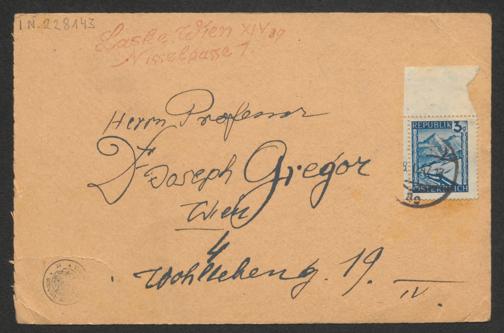 I.N. 228143
Laske, Wien XIV 89
Nisselgasse 1.
Herrn Professor
Dr Joseph Gregor
Wien
4
Wohllebeng. 19.
IV.
REPUBLIK
3g
ÖSTERREICH